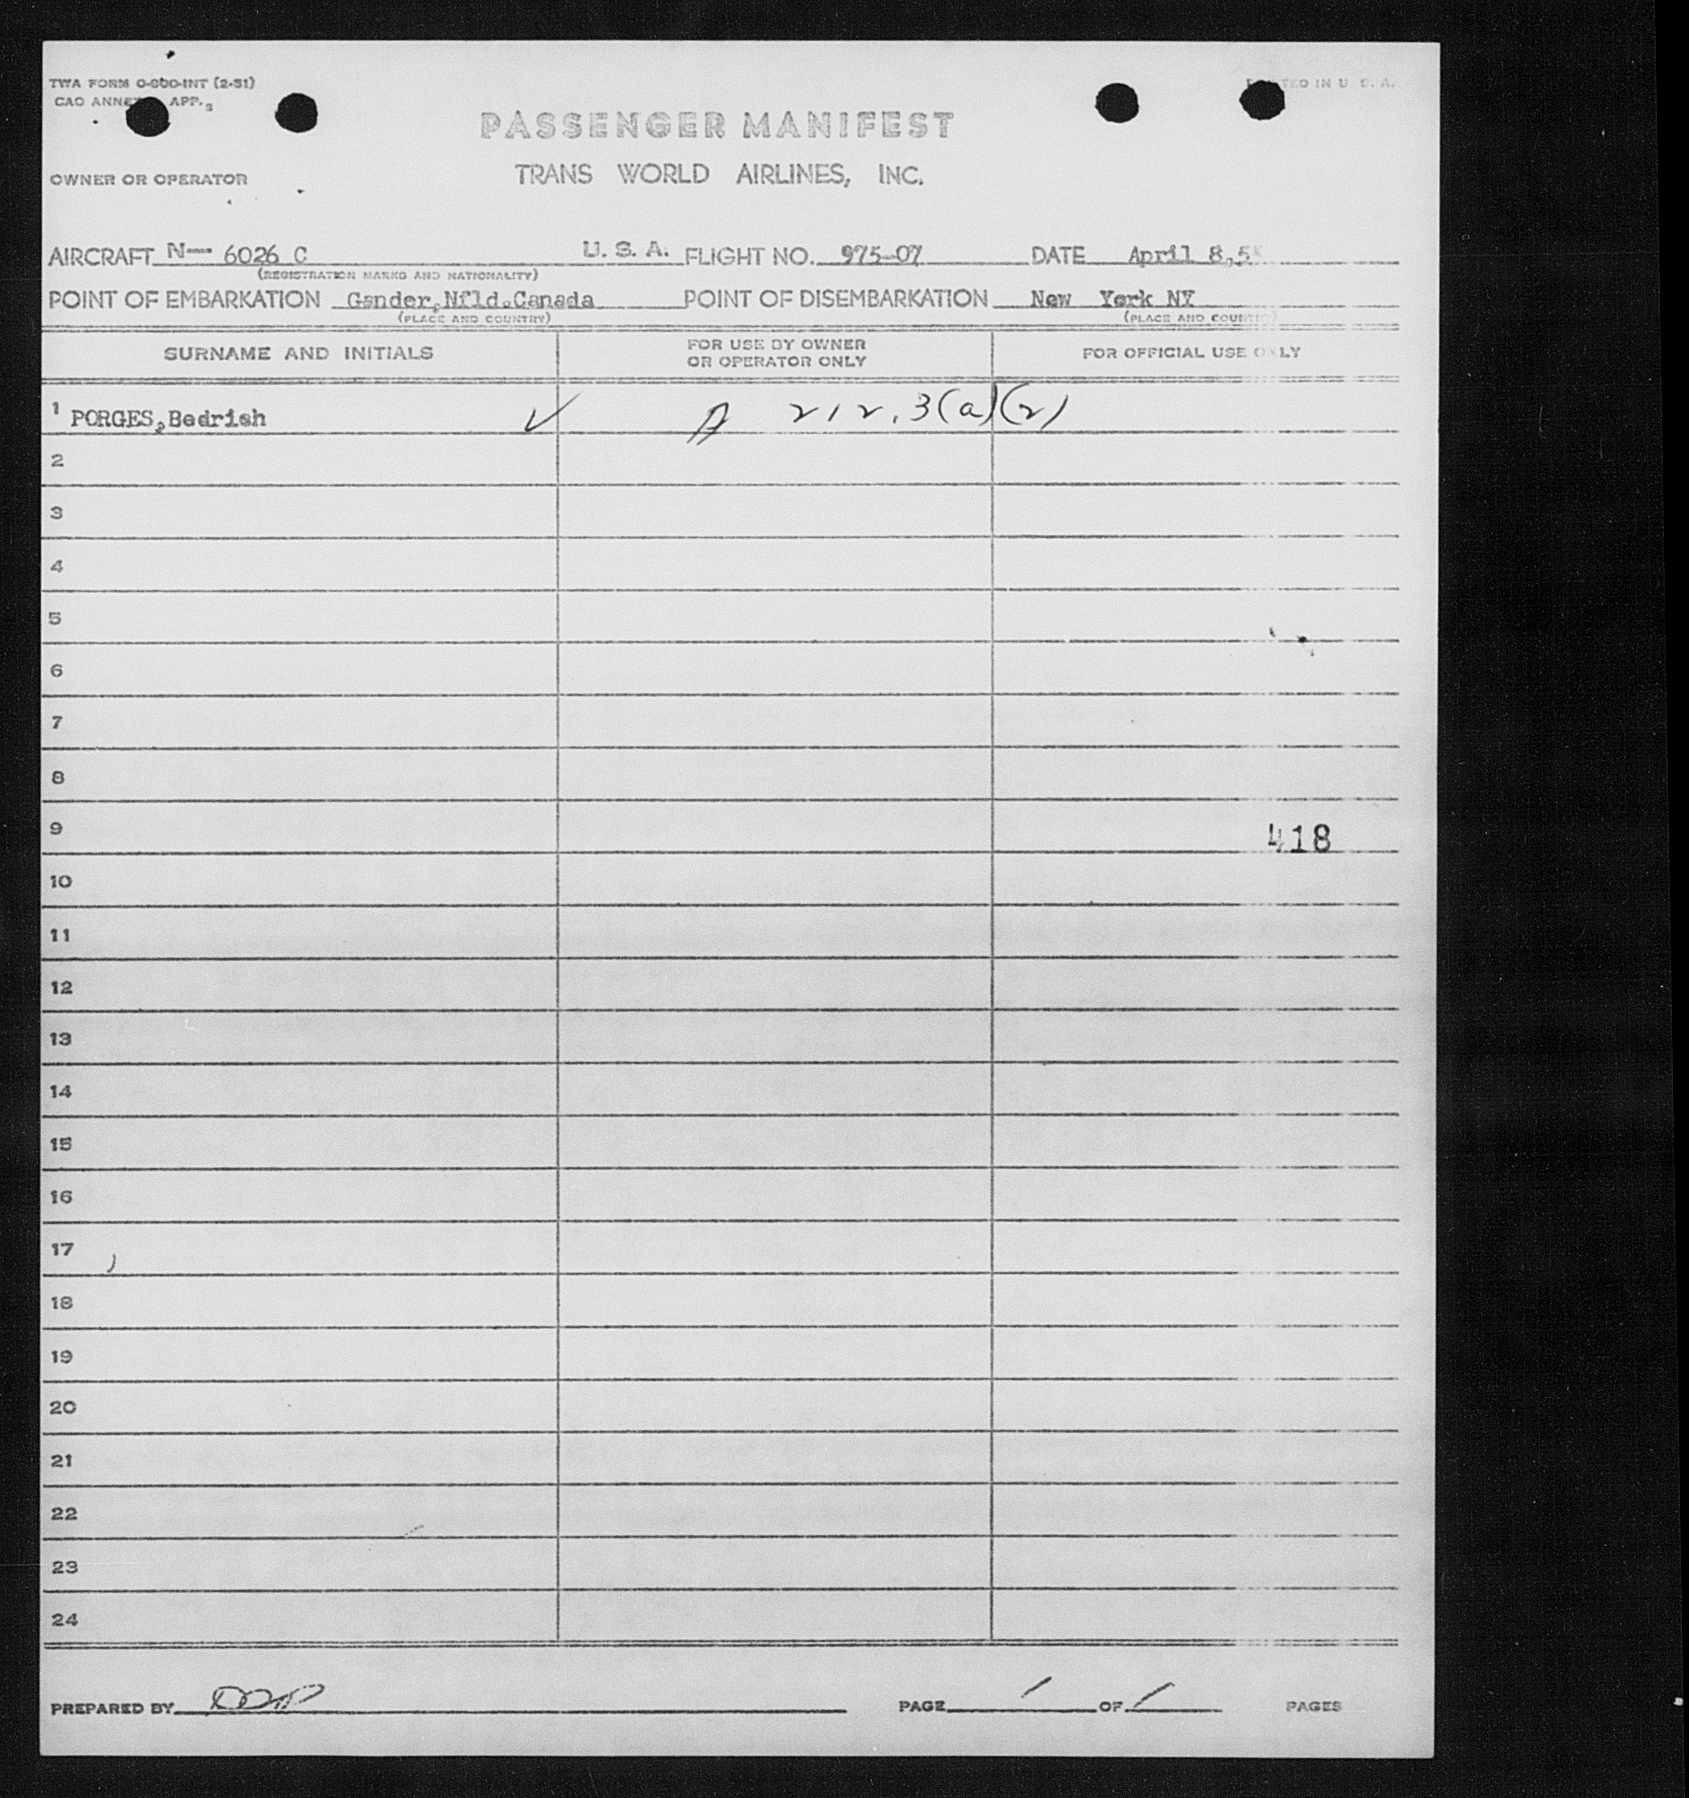 TWA FORM O-800-INT (2-51)
CAO ANNEX APP. 3
PRINTED IN U. S. A.
PASSENGER MANIFEST
OWNER OR OPERATOR
TRANS WORLD AIRLINES, INC.
AIRCRAFT N— 6026 C U. S. A. FLIGHT NO. 975-07 DATE April 8,5
(REGISTRATION MARKS AND NATIONALITY)
POINT OF EMBARKATION Gander,Nfld.Canada POINT OF DISEMBARKATION New York NY
(PLACE AND COUNTRY) (PLACE AND COUNTRY)
SURNAME AND INITIALS FOR USE BY OWNER OR OPERATOR ONLY FOR OFFICIAL USE ONLY
1 PORGES,Bedrish ✓ 212.3(a)(2)
2
3
4
5
6
7
8
9 418
10
11
12
13
14
15
16
17
18
19
20
21
22
23
24
PREPARED BY PAGE 1 OF 1 PAGES